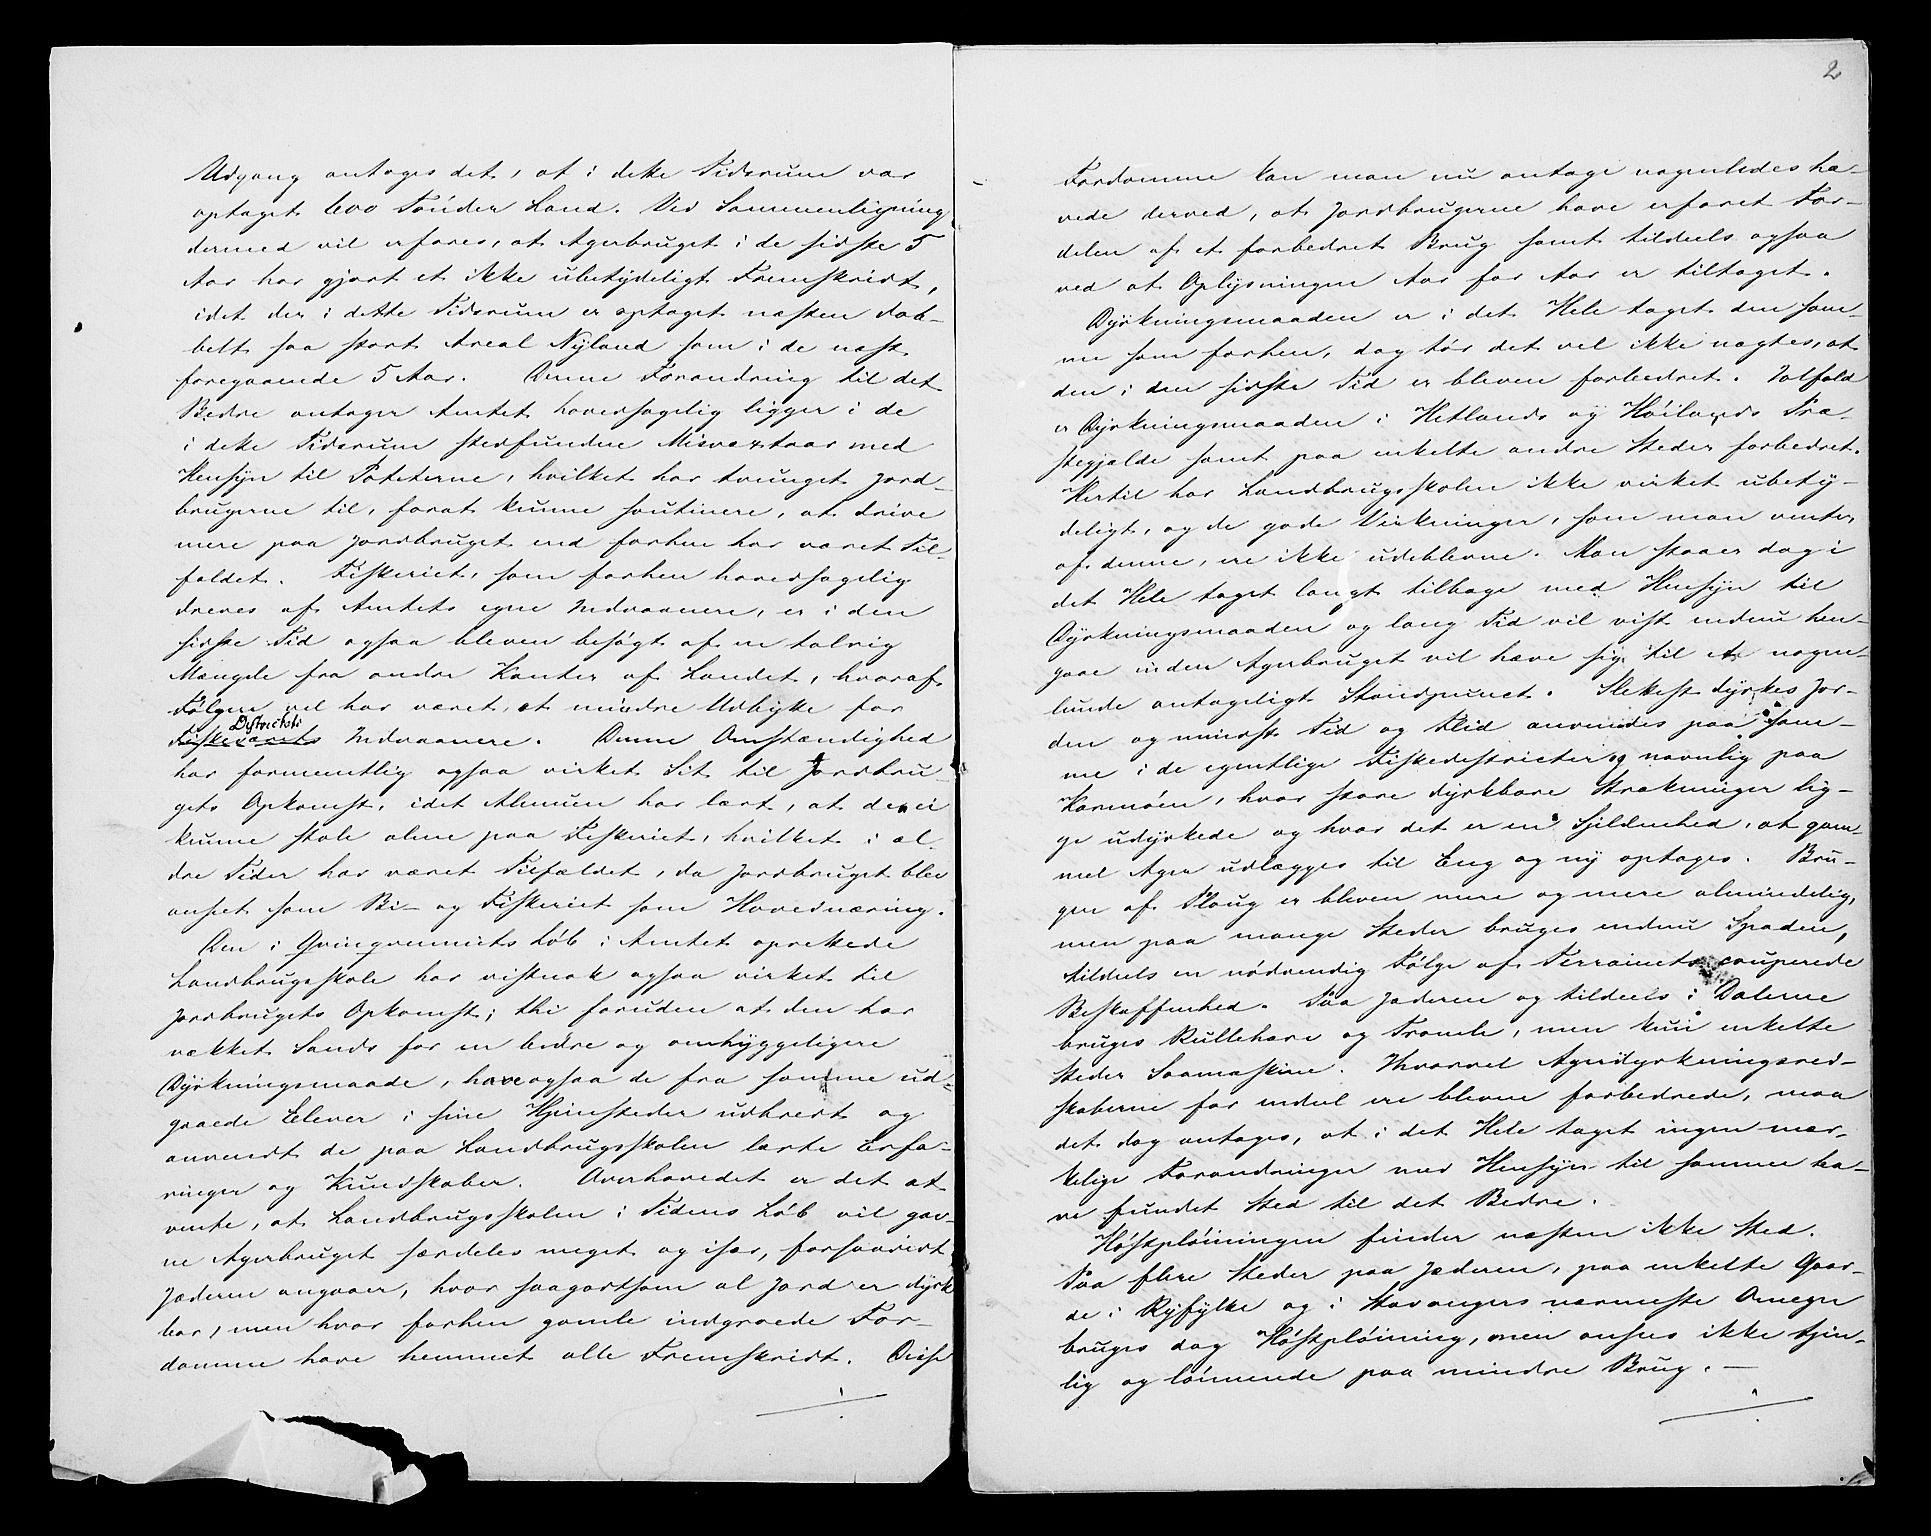 Udgang antages det, at i dette Tidsrum var
optaget 600 Tönder Land. Ved Sammenligning
dermed vil erfares, at Agerbruget i de sidste 5
Aar har gjort et ikke ubetydeligt Fremskridt,
idet der i dette Tidsrum er optaget næsten dob-
belt saa stort Areal Nyland som i de næst
foregaaende 5 Aar. Denne Forandring til det
Bedre antager Amtet hovedsagelig ligger i de
i dette Tidsrum stedfundne Misvæxtaar med
Hensyn til Poteterne, hvilket har tvunget Jord-
brugerne til, forat kunne soutinere, at drive
mere paa Jordbruget end forhen har været Til-
fældet. Fiskeriet, som forhen hovedsagelig
dreves af Amtets egne Indvaanere, er i den
sidste Tid ogsaa bleven besøgt af en talrig
Mængde fra andre Kanter af Landet, hvoraf
Følgen vel har været, et mindre Udbytte for
Districtets
Indvaanere. Denne Omstændighed
har formentlig ogsaa virket Sit til Jordbru-
gets Opkomst, idet Almuen har lært, at den ei
kunne stole alene paa Fiskeriet, hvilket i æl-
dre Tider har været Tilfældet, da Jordbruget blev
anseet som Bi- og Fiskeriet som Hovednæring.
Den i Qvinqvenniets Løb i Amtet oprettede
Landbrugsskole har vistnok ogsaa virket til
Jordbrugets Opkomst; thi foruden at den har
vækket Sands for en bedre og omhyggeligere
Dyrkningsmaade, have ogsaa de fra samme ud-
gaaede Elever i sine Hjemsteder udbredt og
anvendt de paa Landbrugsskolen lærte Erfa-
ringer og Kundskaber. Overhovedet er det at
vente, at Landbrugsskolen i Tidens Løb vil gav-
ne Agerbruget særdeles meget og især, forsaavidt
Jæderen angaaer, hvor saagodtsom al Jord er dyrk
bar, men hvor forhen gamle indgroede For-
domme have hemmet alle Fremskridt. Disse
2
Fordomme kan man nu antage nogenledes hæ-
vede derved, at Jordbrugerne have erfaret For-
delen af et forbedret Brug samt tildeels ogsaa
ved at Oplysningen Aar for Aar er tiltaget.
Dyrkningsmaaden er i det Hele taget den sam-
me som forhen, dog tør det vel ikke nægtes, at
den i den sidste Tid er bleven forbedret. Ialfald
er Dyrkningsmaaden i Hetlands og Høilands Præ-
stegjælde samt paa enkelte andre Steder forbedret.
Hertil har Landbrugsskolen ikke virket ubety-
deligt, og de gode Virkninger, som man venter
af denne, ere ikke udeblevne. Man staaer dog i
det Hele taget langt tilbage med Hensyn til
Dyrkningsmaaden og lang Tid vil vist endnu hen-
gaae inden Agerbruget vil hæve sig til et nogen-
lunde antageligt Standpunct. Slettest dyrkes Jor-
den og mindst Tid og Flid anvendes paa sam-
me i de egentlige Fiskedistricter og navnlig paa
Karmøen, hvor store dyrkbare Strækninger lig-
ge udyrkede og hvor det er en Sjeldenhed, at gam-
mel Ager udlægges til Eng og ny optages. Bru-
gen af Ploug er bleven mere og mere almindelig,
men paa mange Steder bruges endnu Spaden,
tildeels en nødvendig Følge af Terrainets couperede
Beskaffenhed. Paa Jæderen og tildeels i Dalerne
bruges Rulleharv og Tromle, men kun enkelte
Steder Saamaskine. Hvorvel Agerdyrkningsred-
skaberne for endel ere blevne forbedrede, maa
det dog antages, at i det Hele taget ingen mær-
kelige Forandringer med Hensyn til samme ha-
ve fundet Sted til det Bedre.
Høstpløiningen finder næsten ikke Sted.
Paa flere Steder paa Jæderen, paa enkelte Gaar-
de i Ryfylke og i Stavangers nærmeste Omegn
bruges dog Høstpløining, men ansees ikke tjen-
lig og lønnende paa mindre Brug. —